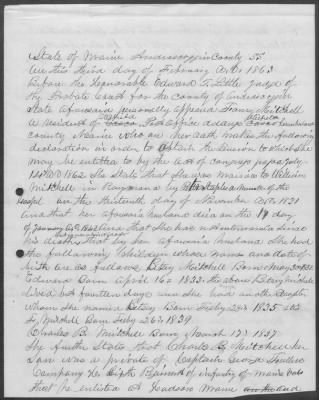 State of Maine Androscoggin County SS
On this third day of February A.D. 1863
Before the Honorable Edward T. Little Judge of
the Probate Court for the County of Androscoggin
State aforesaid personally appeared Fanny Mitchell
a resident of Post office address
County Maine who on her oath makes the following
declaration in order to obtain the pension to which she
may be entitled to by the act of Congress passed July
14th AD 1862 She State that She was married to William
Mitchell in Raymond by a Minister of the
Gospel on the thirteenth day of November A.D. 1831
and that her aforesaid husband died on the 19 day
of January A.D. that She has not intermarried since
his death that by her aforesaid husband She had
the following Children whose names and date of
birth are as follows Betsy Mitchell Born
Edward Born April 16 1833 the above Betsy Mitchell
lived but fourteen days and She had another Daughter
whom She named Betsy Born July 29th 1835
Mitchell Born July 26th 1839
Charles B. Mitchell Born March 17 1837
She further State that Charles B. Mitchell her
Son was a private of Captain George
Company the Regiment of infantry of Maine Vols
that he enlisted at Maine